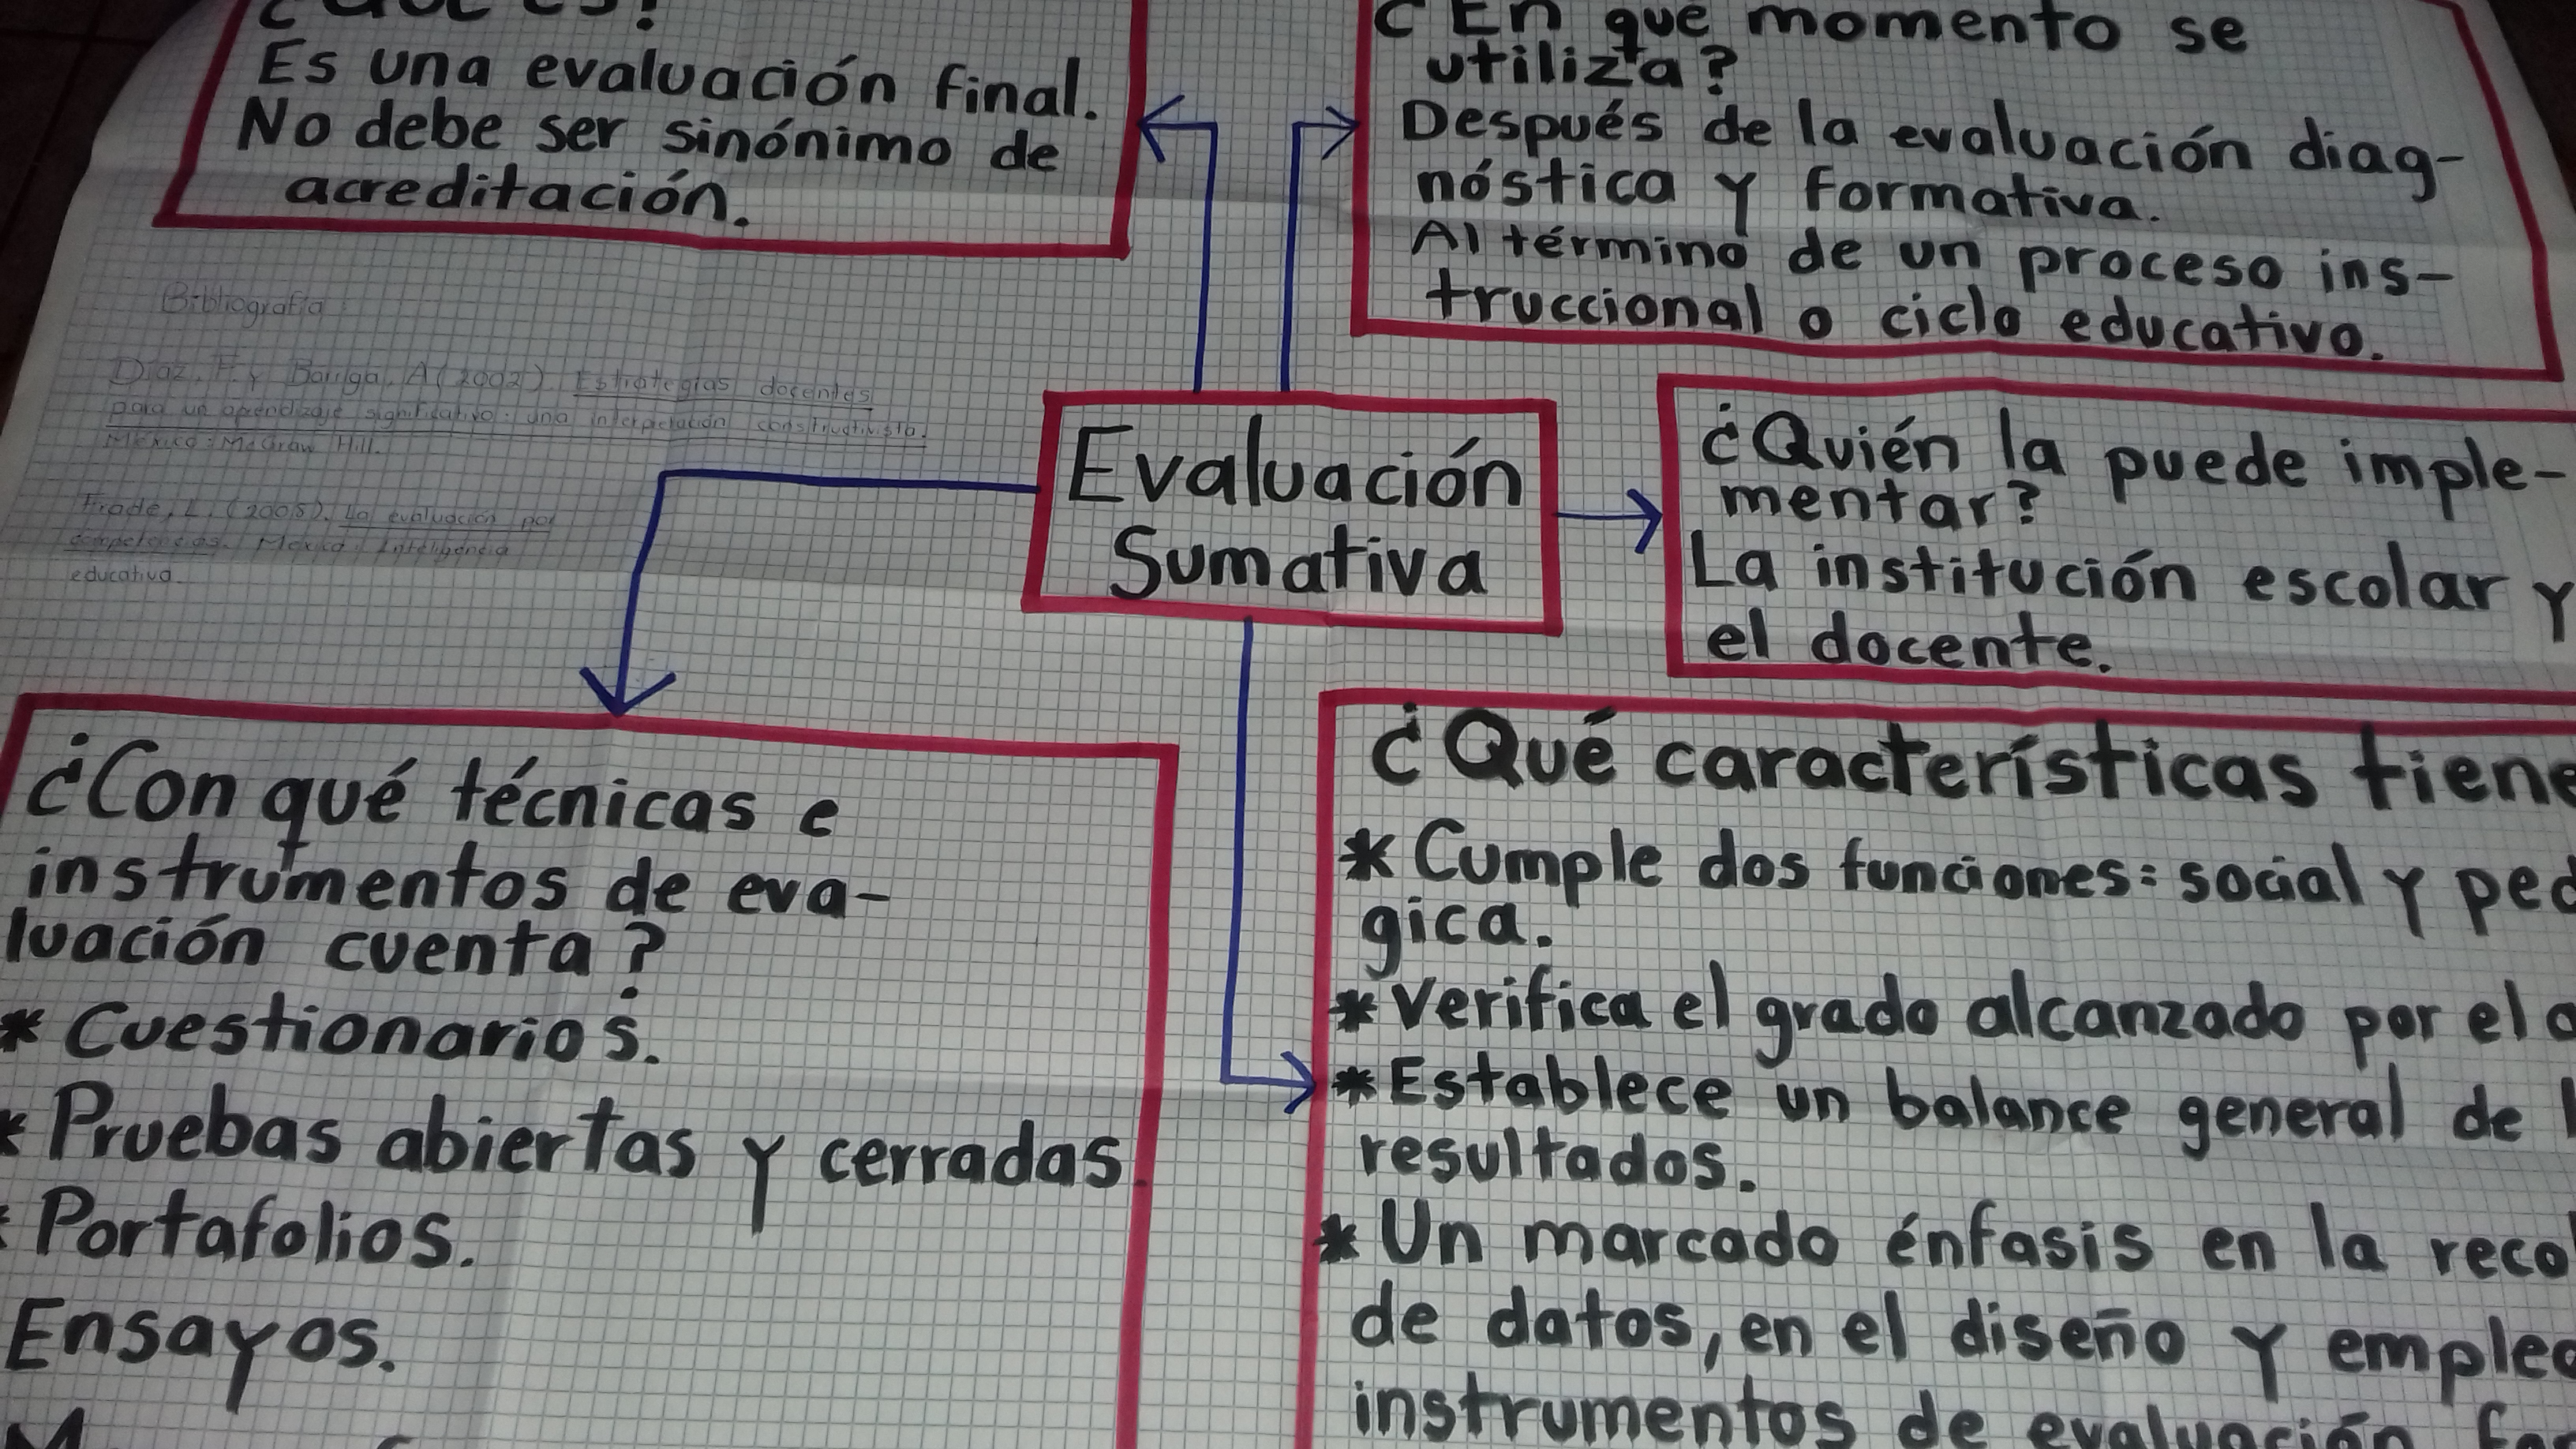 ¿Qué es?
Es una evaluación final.
No debe ser sinónimo de
acreditación.
¿En qué momento se
utiliza?
Después de la evaluación diag-
nóstica y formativa.
Al término de un proceso ins-
truccional o ciclo educativo.
Bibliografía
Díaz, F. y Barriga, A (2002). Estrategias docentes
para un aprendizaje significativo: una interpretación constructivista.
México: McGraw Hill.
Frade, L. (2008). La evaluación por
competencias. México: Inteligencia
educativa.
Evaluación
Sumativa
¿Quién la puede imple-
mentar?
La institución escolar y
el docente.
¿Con qué técnicas e
instrumentos de eva-
luación cuenta?
* Cuestionarios.
* Pruebas abiertas y cerradas.
* Portafolios.
Ensayos.
¿Qué características tiene
* Cumple dos funciones: social y ped
gica.
* Verifica el grado alcanzado por el
* Establece un balance general de
resultados.
* Un marcado énfasis en la reco
de datos, en el diseño y empleo
instrumentos de evaluación